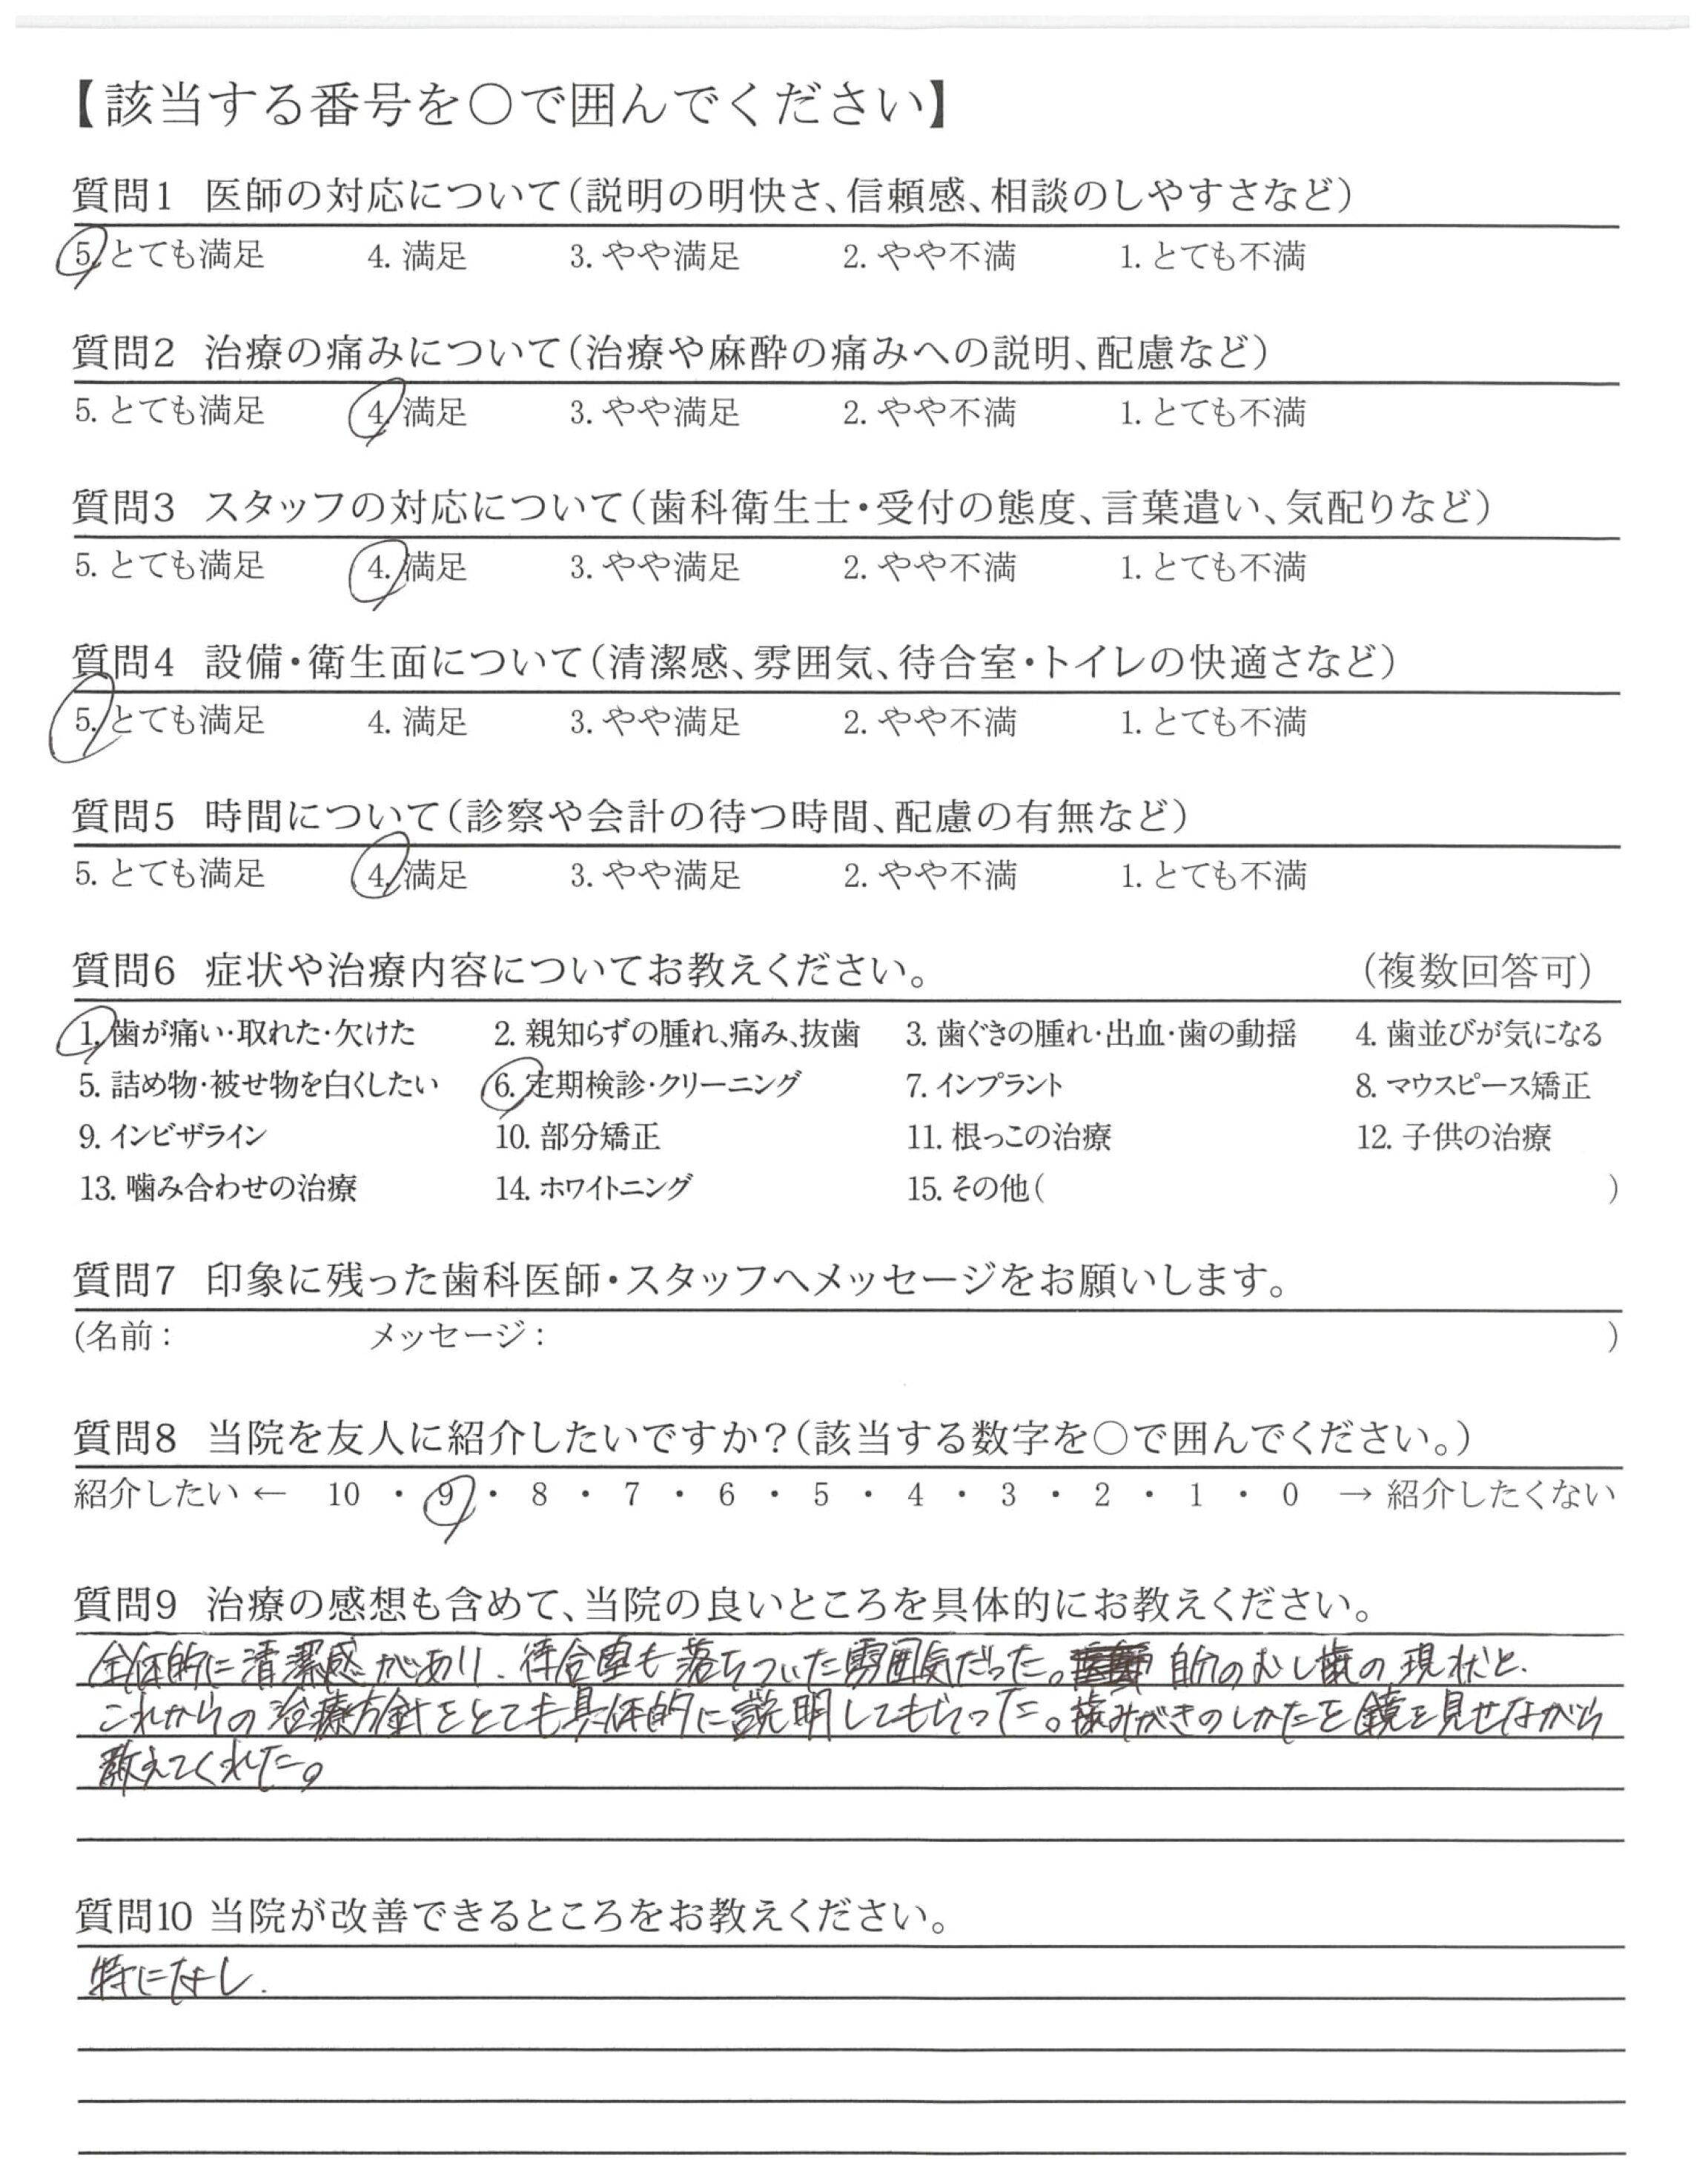 【該当する番号を○で囲んでください】
質問1 医師の対応について(説明の明快さ、信頼感、相談のしやすさなど)
5. とても満足 4. 満足 3. やや満足 2. やや不満 1. とても不満
質問2 治療の痛みについて(治療や麻酔の痛みへの説明、配慮など)
5. とても満足 4. 満足 3. やや満足 2. やや不満 1. とても不満
質問3 スタッフの対応について(歯科衛生士・受付の態度、言葉遣い、気配りなど)
5. とても満足 4. 満足 3. やや満足 2. やや不満 1. とても不満
質問4 設備・衛生面について(清潔感、雰囲気、待合室・トイレの快適さなど)
5. とても満足 4. 満足 3. やや満足 2. やや不満 1. とても不満
質問5 時間について(診察や会計の待つ時間、配慮の有無など)
5. とても満足 4. 満足 3. やや満足 2. やや不満 1. とても不満
質問6 症状や治療内容についてお教えください。 (複数回答可)
1. 歯が痛い・取れた・欠けた 2. 親知らずの腫れ、痛み、抜歯 3. 歯ぐきの腫れ・出血・歯の動揺 4. 歯並びが気になる
5. 詰め物・被せ物を白くしたい 6. 定期検診・クリーニング 7. インプラント 8. マウスピース矯正
9. インビザライン 10. 部分矯正 11. 根っこの治療 12. 子供の治療
13. 噛み合わせの治療 14. ホワイトニング 15. その他( )
質問7 印象に残った歯科医師・スタッフへメッセージをお願いします。
(名前: メッセージ: )
質問8 当院を友人に紹介したいですか?(該当する数字を○で囲んでください。)
紹介したい ← 10 ・ 9 ・ 8 ・ 7 ・ 6 ・ 5 ・ 4 ・ 3 ・ 2 ・ 1 ・ 0 → 紹介したくない
質問9 治療の感想も含めて、当院の良いところを具体的にお教えください。
全体的に清潔感があり、待合室も落ちついた雰囲気だった。自分のむし歯の現状と、
これからの治療方針をとても具体的に説明してもらった。歯みがきのしかたを鏡を見せながら
教えてくれた。
質問10 当院が改善できるところをお教えください。
特になし.